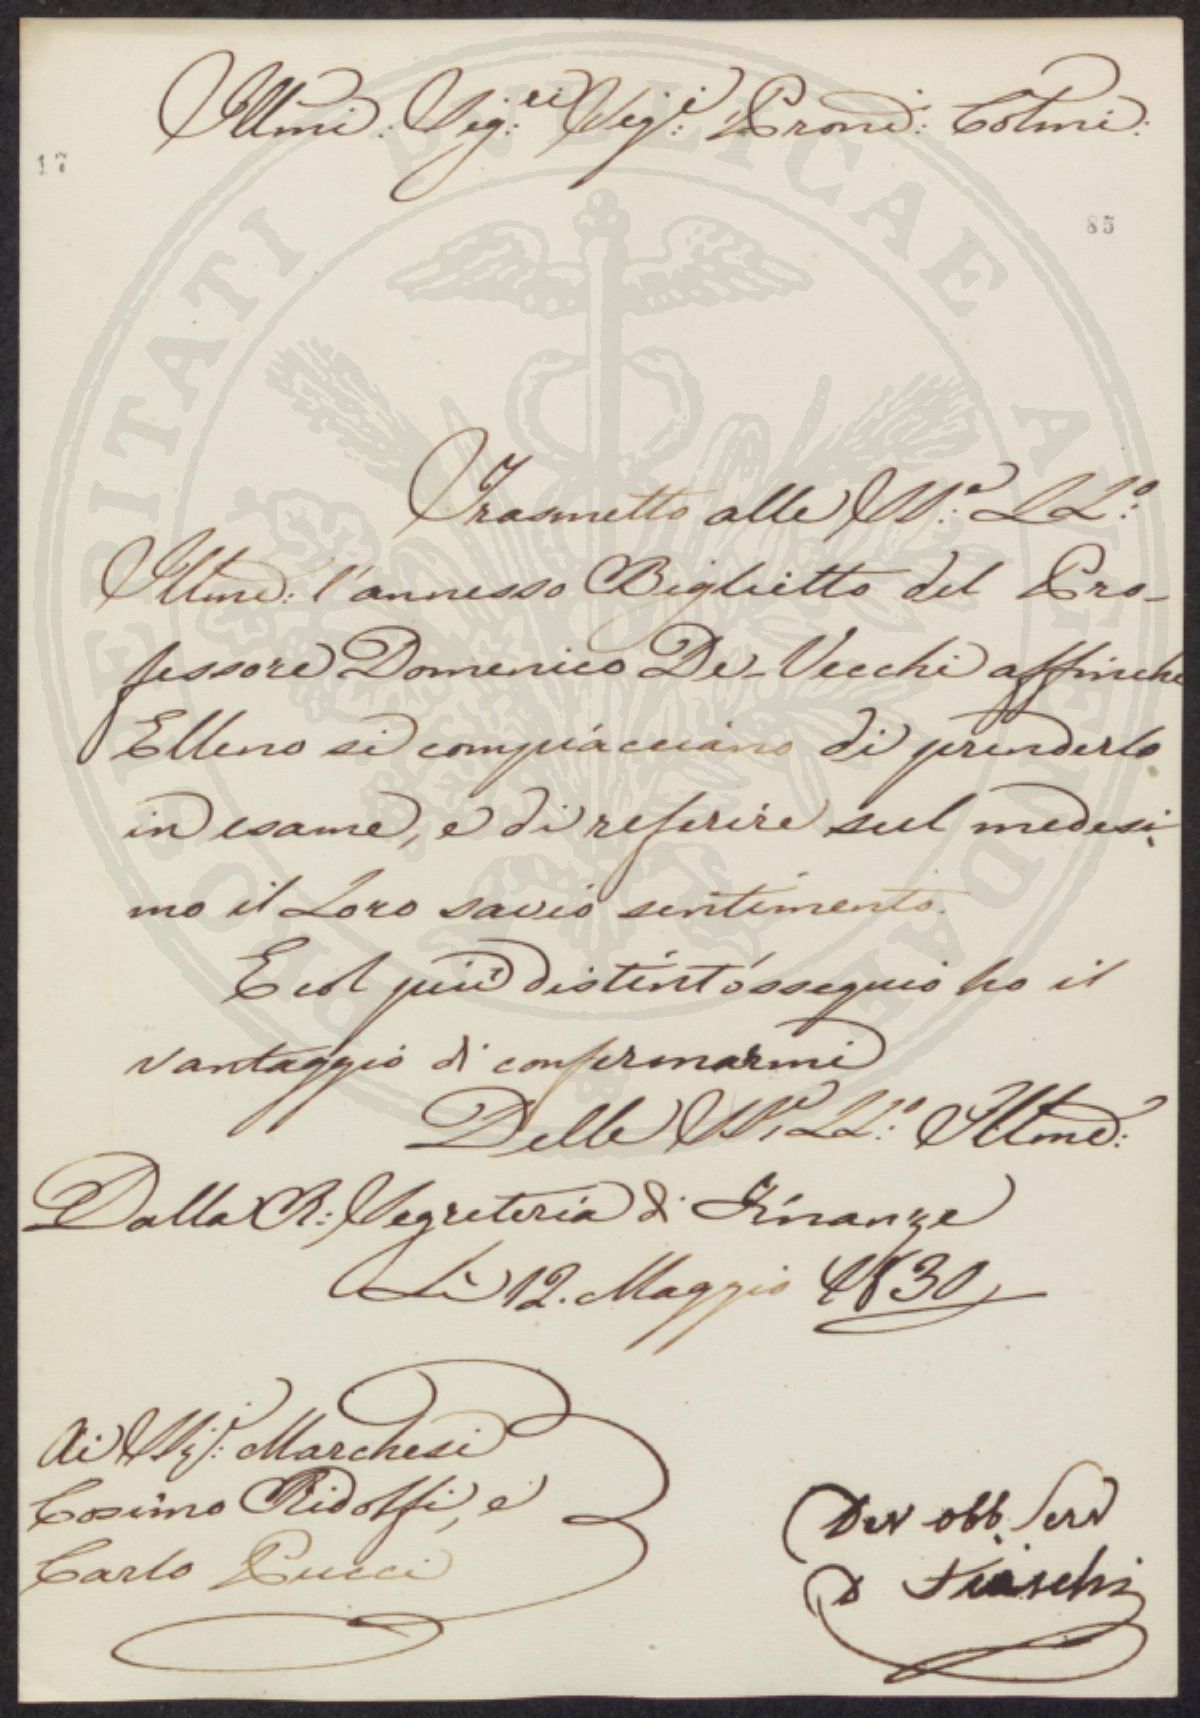 Illmi: Sig:ri Sig:i Proni: Colmi:
17
85
Trasmetto alle SS:e LL:e
Illme: l'annesso Biglietto del Pro-
fessore Domenico De-Vecchi affinche
Elleno si compiacciano di prenderlo
in esame, e di referire sul medesi-
mo il Loro savio sentimento.
E col più distinto ossequio ho il
vantaggio di confermarmi
Delle SS:e LL:e Illme:
Dalla R: Segreteria di Finanze
Li 12. Maggio 1830
Ai SSig:i Marchesi
Cosimo Ridolfi, e
Carlo Pucci
Dev obb Serv
D Fiaschi
PROSPERITATI PUBLICAE AUGENDAE